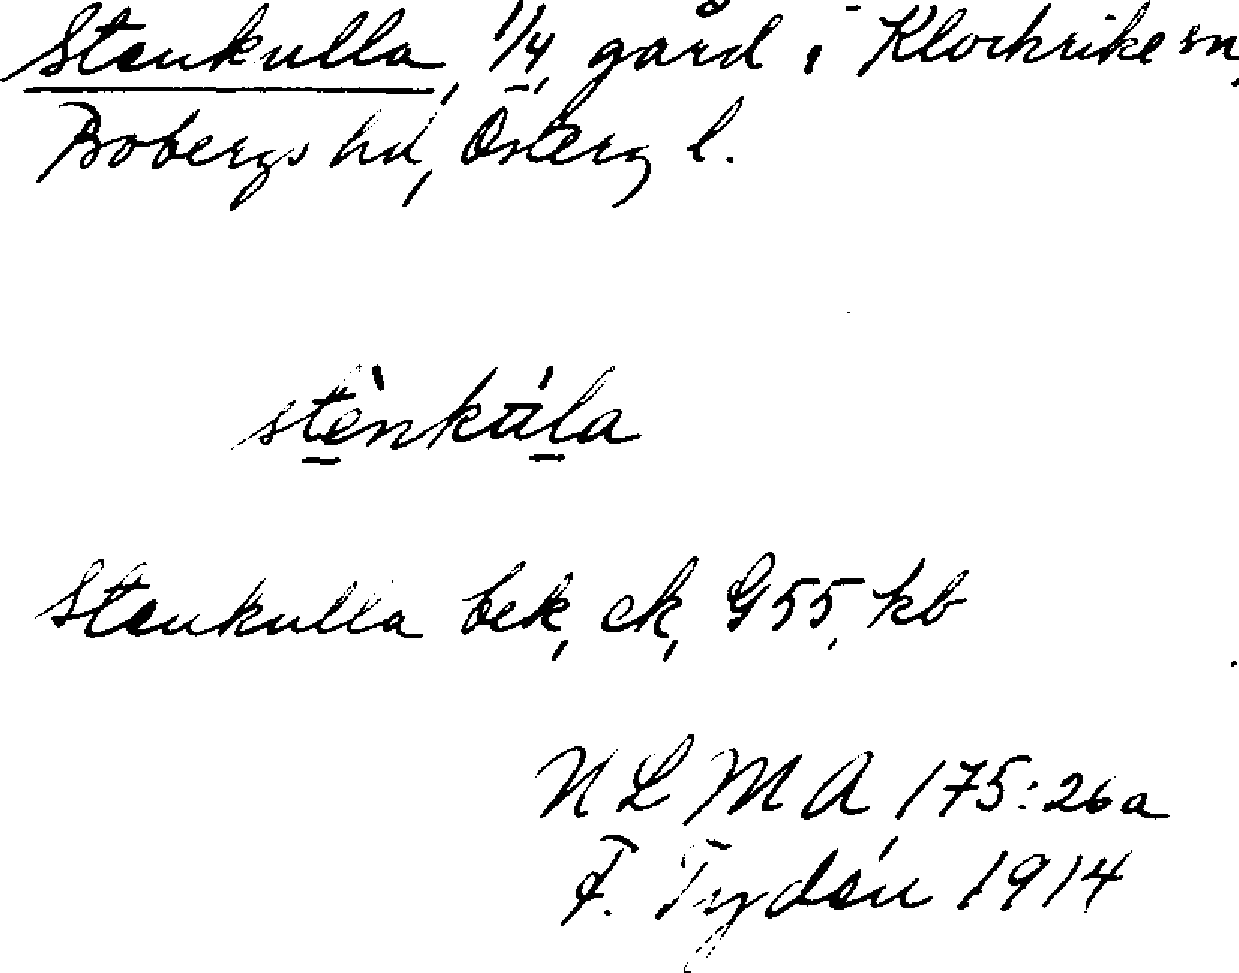 Stenkulla, 1/4, gård i Klockrike sn,
Bobergs hd, Österg l.
stènkúla
Stenkulla bek, ek, G55, kb
N L M A 175:26a
F. Tydén 1914